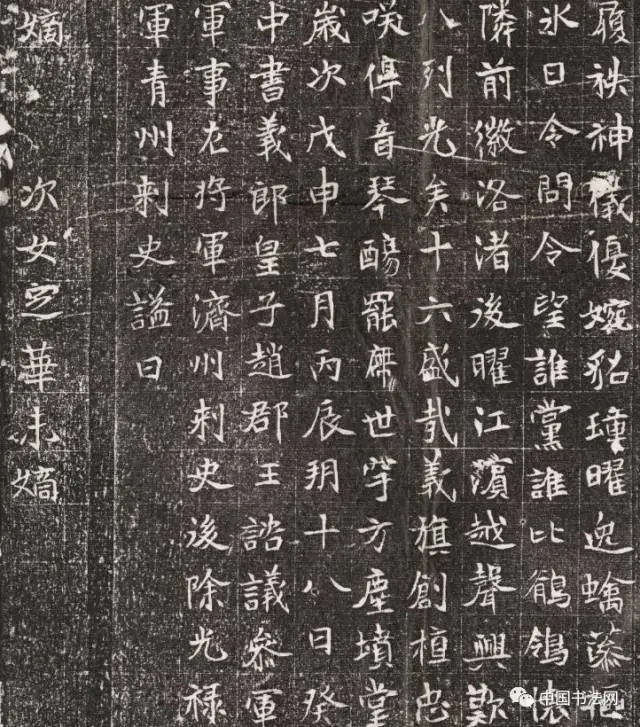 履袟神儀優婉貂曜逸
氷日令問令望誰黨誰比鶺鴒
隣前徽洛渚後曜江濱越聲興歎
八列光矣十六盛哉義旗創植忠
咲停音琴罷世方塵墳堂
歲次戊申七月丙辰朔十八日癸
中書義郎皇子趙郡王諮議參軍
軍事左將軍濟州刺史後除光祿
軍青州刺史謚曰
嫡　次女定華未嫡
中国书法网